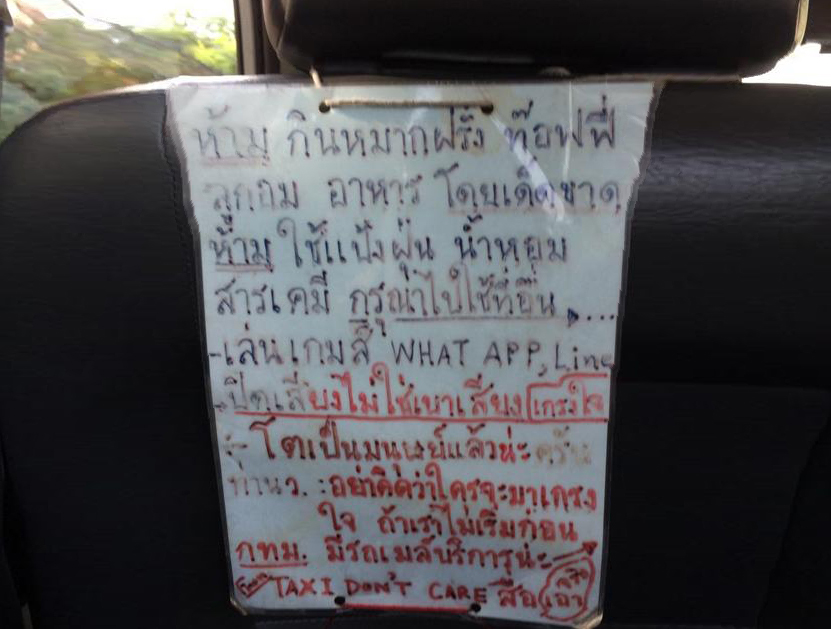 ห้าม กินหมากฝรั่ง ท๊อฟฟี่
ลูกอม อาหาร โดยเด็ดขาด
ห้าม ใช้แป้งฝุ่น น้ำหอม
สารเคมี กรุณาไปใช้ที่อื่น ....
-เล่นเกมส์ WHAT APP, Line
-ปิดเสียงไม่ใช่เบาเสียง เกรงใจ
- โตเป็นมนุษย์แล้วน่ะ ครับ
ท่าน ว. : อย่าคิดว่าใครจะมาเกรง
ใจ ถ้าเราไม่เริ่มก่อน
กทม. มีรถเมล์บริการน่ะ
TAXI DON'T CARE สื่อ